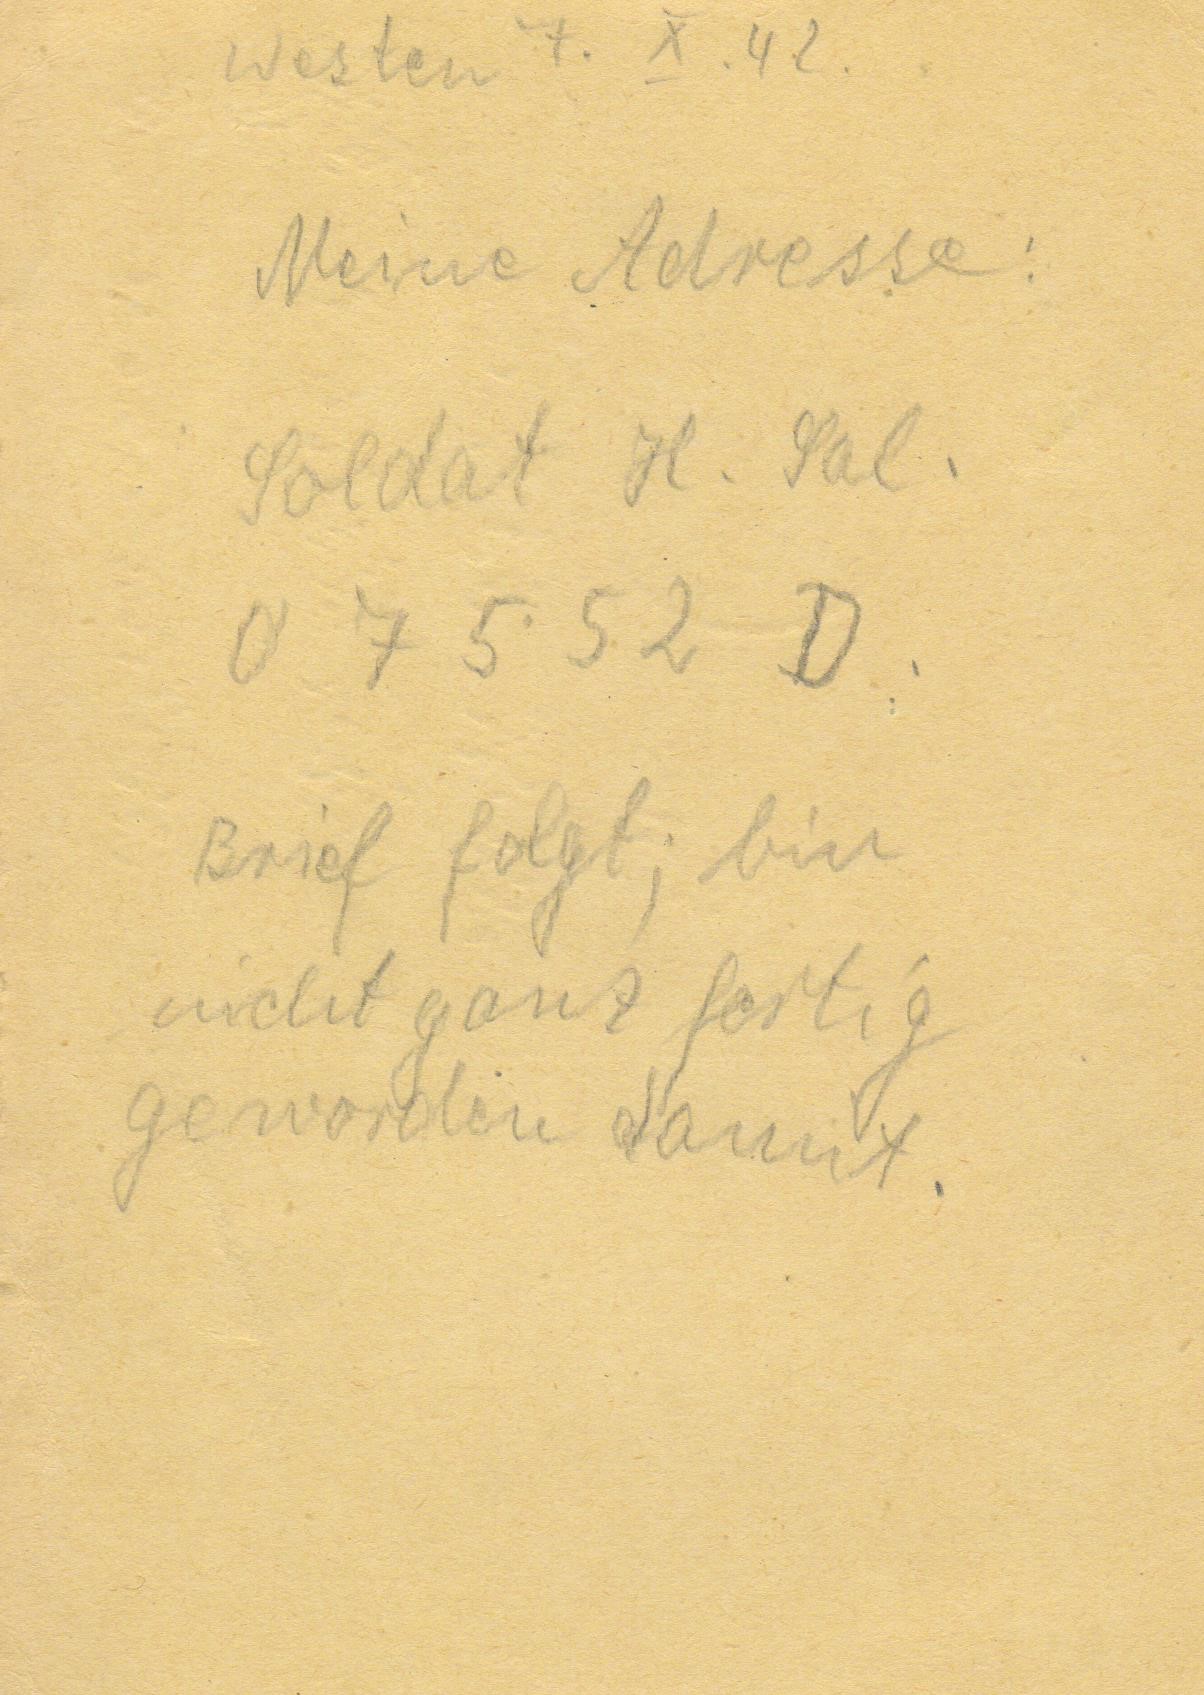 Westen 7. X. 42.
Meine Adresse:
Soldat H. Sal.
07552 D.
Brief folgt; bin
nicht ganz fertig
geworden damit.